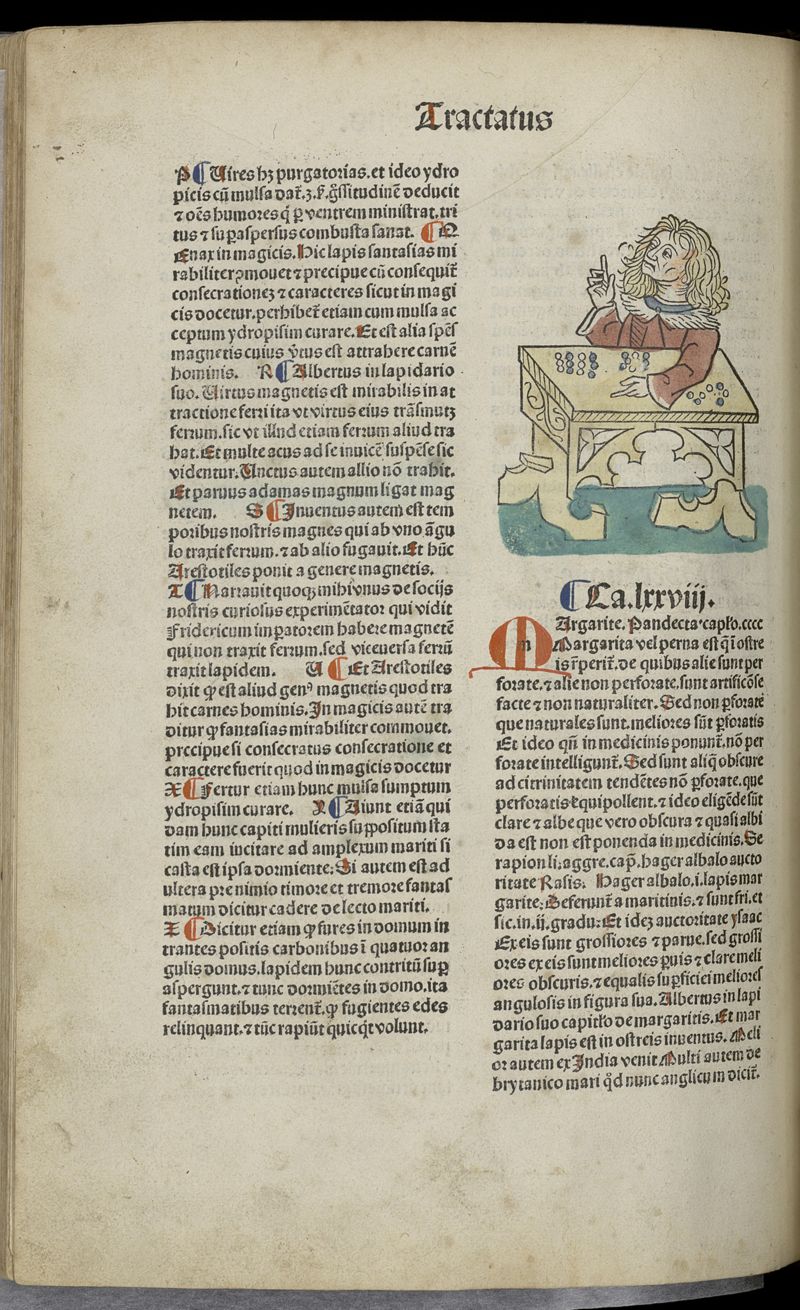 Tractatus
P Uires hʒ purgatorias.et ideo ydro
picis cũ mulsa dat̃.ʒ.ẜ.g̃ssitudinẽ deducit
⁊ oẽs humores q̃ ꝑ ventrem ministrat.tri
tus ⁊ suꝑ aspersus combusta sanat. Q
Enax in magicis.Hic lapis fantasias mi
rabiliter ꝓmouet ⁊ precipue cũ consequit̃
consecrationeʒ ⁊ caracteres sicut in magi
cis docetur.perhibet̃ etiam cum mulsa ac
ceptum ydropisim curare.Et est alia spẽs
magnetis cuius ṽtus est attrahere carnẽ
hominis. R Albertus in lapidario
suo.Uirtus magnetis est mirabilis in at
tractione ferri ita vt virtus eius trãsmutʒ
ferrum.sic vt illud etiam ferrum aliud tra
hat.Et multe acus ad se inuicẽ suspẽse sic
videntur.Unctus autem allio nõ trahit.
Et paruus adamas magnum ligat mag
netem. S Inuentus autem est tem
poribus nostris magnes qui ab vno ãgu
lo traxit ferrum.⁊ ab alio fugauit.Et hũc
Arestotiles ponit a genere magnetis.
T Narrauit quoqʒ mihi vnus de socijs
nostris curiosus experimẽtator qui vidit
Fridericum imꝑatorem habere magnetẽ
qui non traxit ferrum.sed viceuersa ferrũ
traxit lapidem. U Et Arestotiles
dixit ꝙ est aliud genꝰ magnetis quod tra
hit carnes hominis.In magicis autẽ tra
ditur ꝙ fantasias mirabiliter commouet.
precipue si consecratus consecratione et
caractere fuerit quod in magicis docetur
X Fertur etiam hunc mulsa sumptum
ydropisim curare. Y Aiunt etiã qui
dam hunc capiti mulieris suppositum sta
tim eam incitare ad amplexum mariti si
casta est ipsa dormiente:Si autem est ad
ultera pre nimio timore et tremore fantas
matum dicitur cadere de lecto mariti.
Z Dicitur etiam ꝙ fures in domum in
trantes positis carbonibus ĩ quatuor an
gulis domus.lapidem hunc contritũ suꝑ
aspergunt.⁊ tunc dormiẽtes in domo.ita
fantasmatibus terrent̃.ꝙ fugientes edes
relinquant.⁊ tũc rapiũt quicq̃t volunt.
Ca.lxxviij.
MArgarite.Pandecta.capło.cccc
Margarita vel perna est q̃ ĩ ostre
is r̃perit̃.de quibus alie sunt per
forate.⁊ alie non perforate.sunt artificõse
facte ⁊ non naturaliter.Sed non ꝑforate
que naturales sunt.meliores sũt ꝑforatis
Et ideo qñ in medicinis ponunt̃.nõ per
forate intelligunt̃.Sed sunt aliq̃ obscure
ad citrinitatem tendẽtes nõ ꝑforate.que
perforatis equipollent.⁊ ideo eligẽde sũt
clare ⁊ albe que vero obscura ⁊ quasi albi
da est non est ponenda in medicinis.Se
rapion li.aggre.cap.hager albalo aucto
ritate Rasis. Hager albalo.i.lapis mar
garite:Deferunt̃ a maritinis.⁊ sunt fri.et
sic.in.ij.gradu:Et ideʒ auctoritate ysaac
Ex eis sunt grossiores ⁊ parue.sed grossi
ores ex eis sunt meliores ꝑuis ⁊ clare meli
ores obscuris.⁊ equalis suꝑficiei meliores
angulosis in figura sua.Albertus in lapi
dario suo capitło de margaritis.Et mar
garita lapis est in ostreis inuentus.Meli
or autem ex India venit Multi autem de
brytanico mari q̃d nunc anglicum dicit̃.